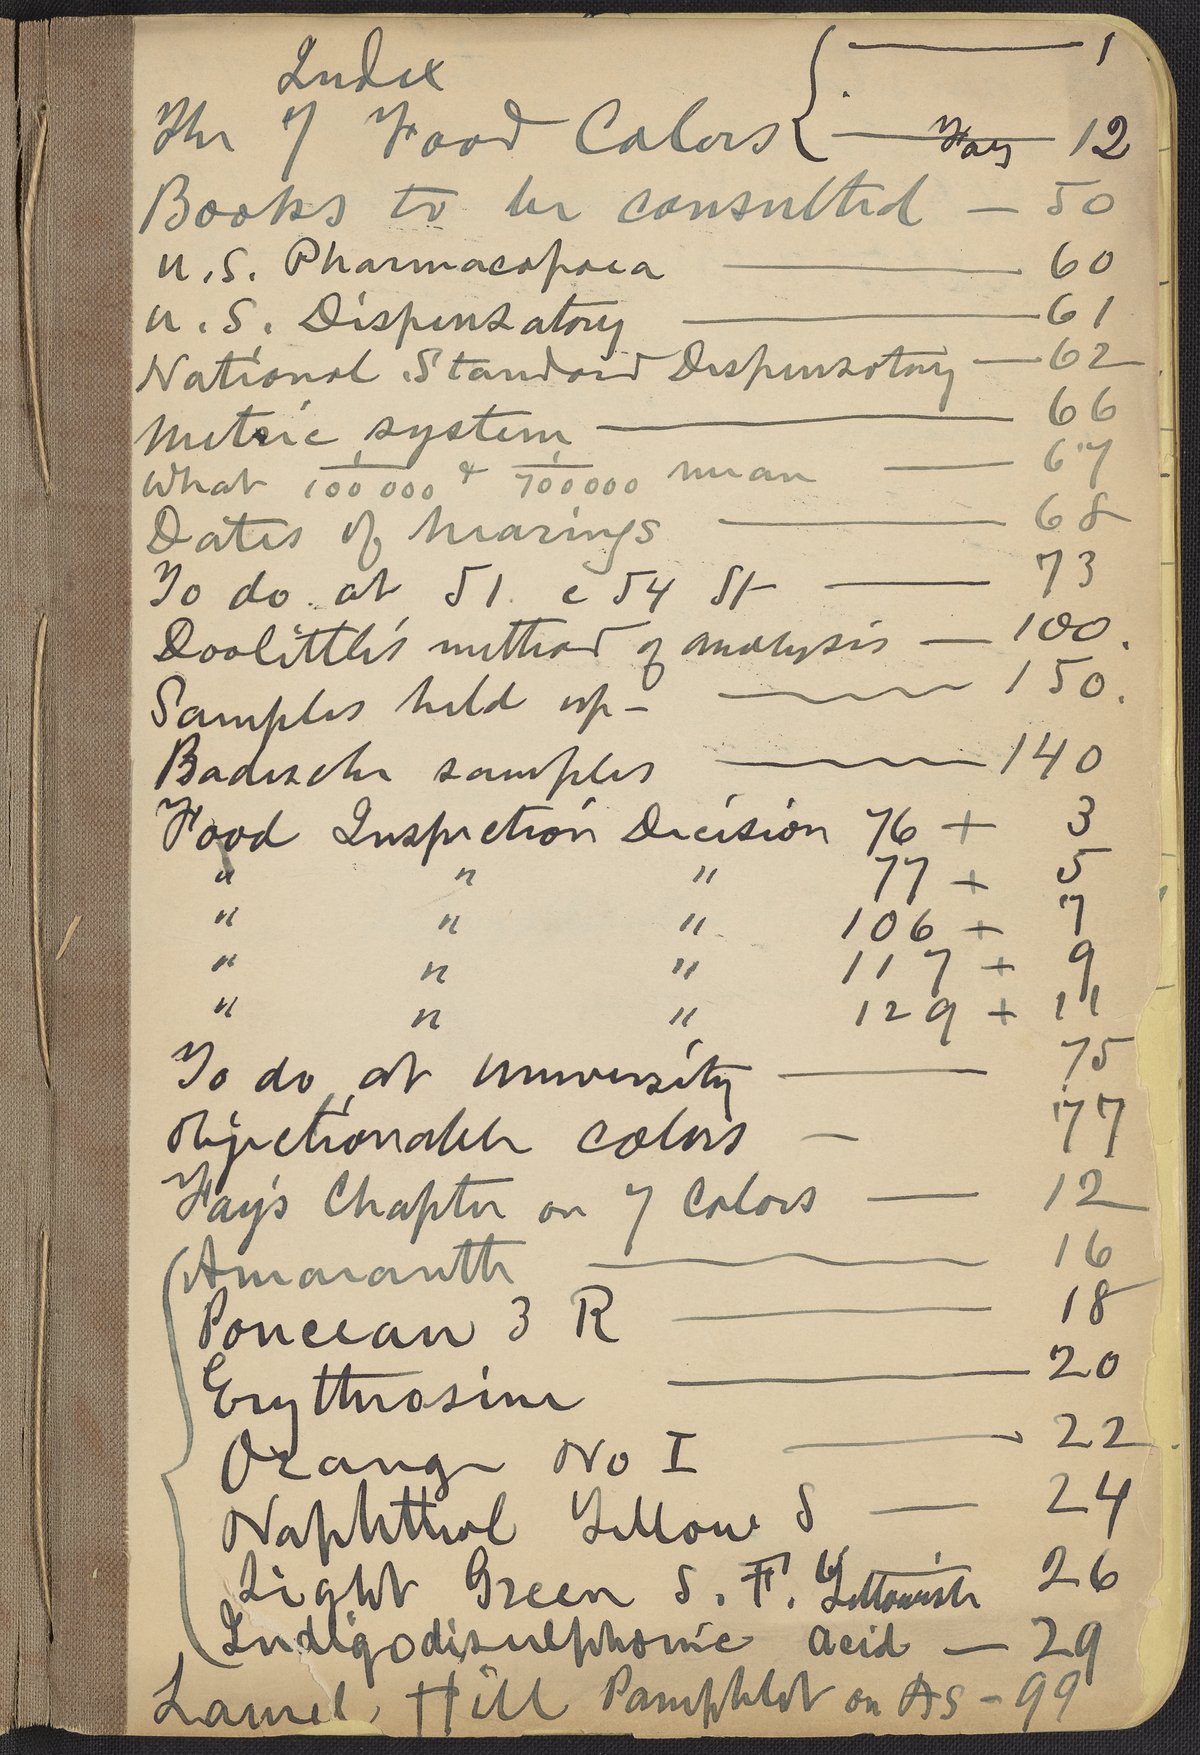 Index
{ — 1
The 7 Food Colors { — Fays — 12
Books to be consulted — 50
U.S. Pharmacopoea — 60
U.S. Dispensatory — 61
National Standard Dispensatory — 62
Metric system — 66
What 1/100000 & 1/700000 mean — 67
Dates of hearings — 68
To do at 51 E 54 St — 73
Doolittle's method of analysis — 100.
Samples held up — 150.
Badische samples — 140
Food Inspection Decision 76 + 3
" " " 77 + 5
" " " 106 + 7
" " " 117 + 9
" " " 129 + 11
To do at University — 75
Objectionable colors — 77
Fay's Chapter on 7 Colors — 12
Amaranth — 16
Ponceau 3 R — 18
Erythrosine — 20
Orange No I — 22
Naphthol Yellow S — 24
Light Green S. F. Yellowish 26
Indigodisulphonic acid — 29
Laurel Hill Pamphlet on As — 99